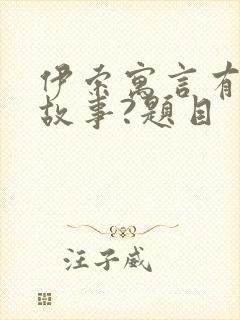 伊索寓言有
故事?题目
汪子威